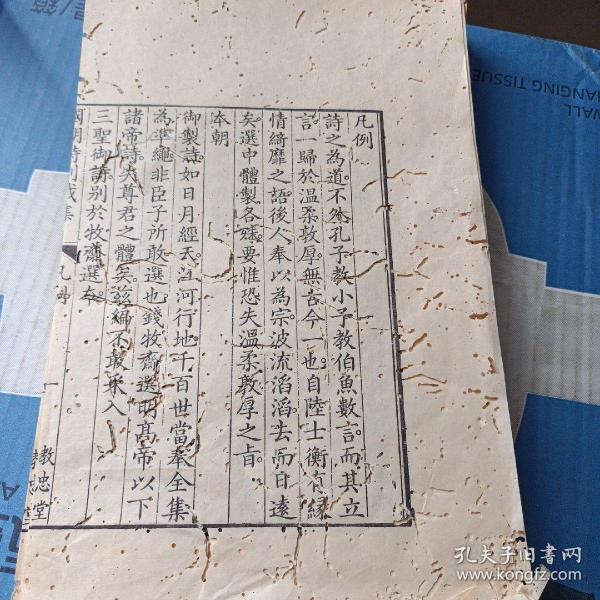 凡例
詩之為道不外孔子教小子教伯魚數言而其立
言一歸於溫柔敦厚無古今一也自陸士衡有緣
情綺靡之語後人奉以為宗波流滔滔去而日遠
矣選中體製各殊要惟恐失溫柔敦厚之旨
本朝
御製詩如日月經天江河行地千百世當奉全集
為準繩非臣子所敢選也錢牧齋選明高帝以下
諸帝詩失尊君之體矣茲編不敢采入
三聖御詩別於牧齋選本
國朝詩別裁集
凡例
一
教忠堂
WALL
HANGING TISSUE
孔夫子旧书网
www.kongfz.com